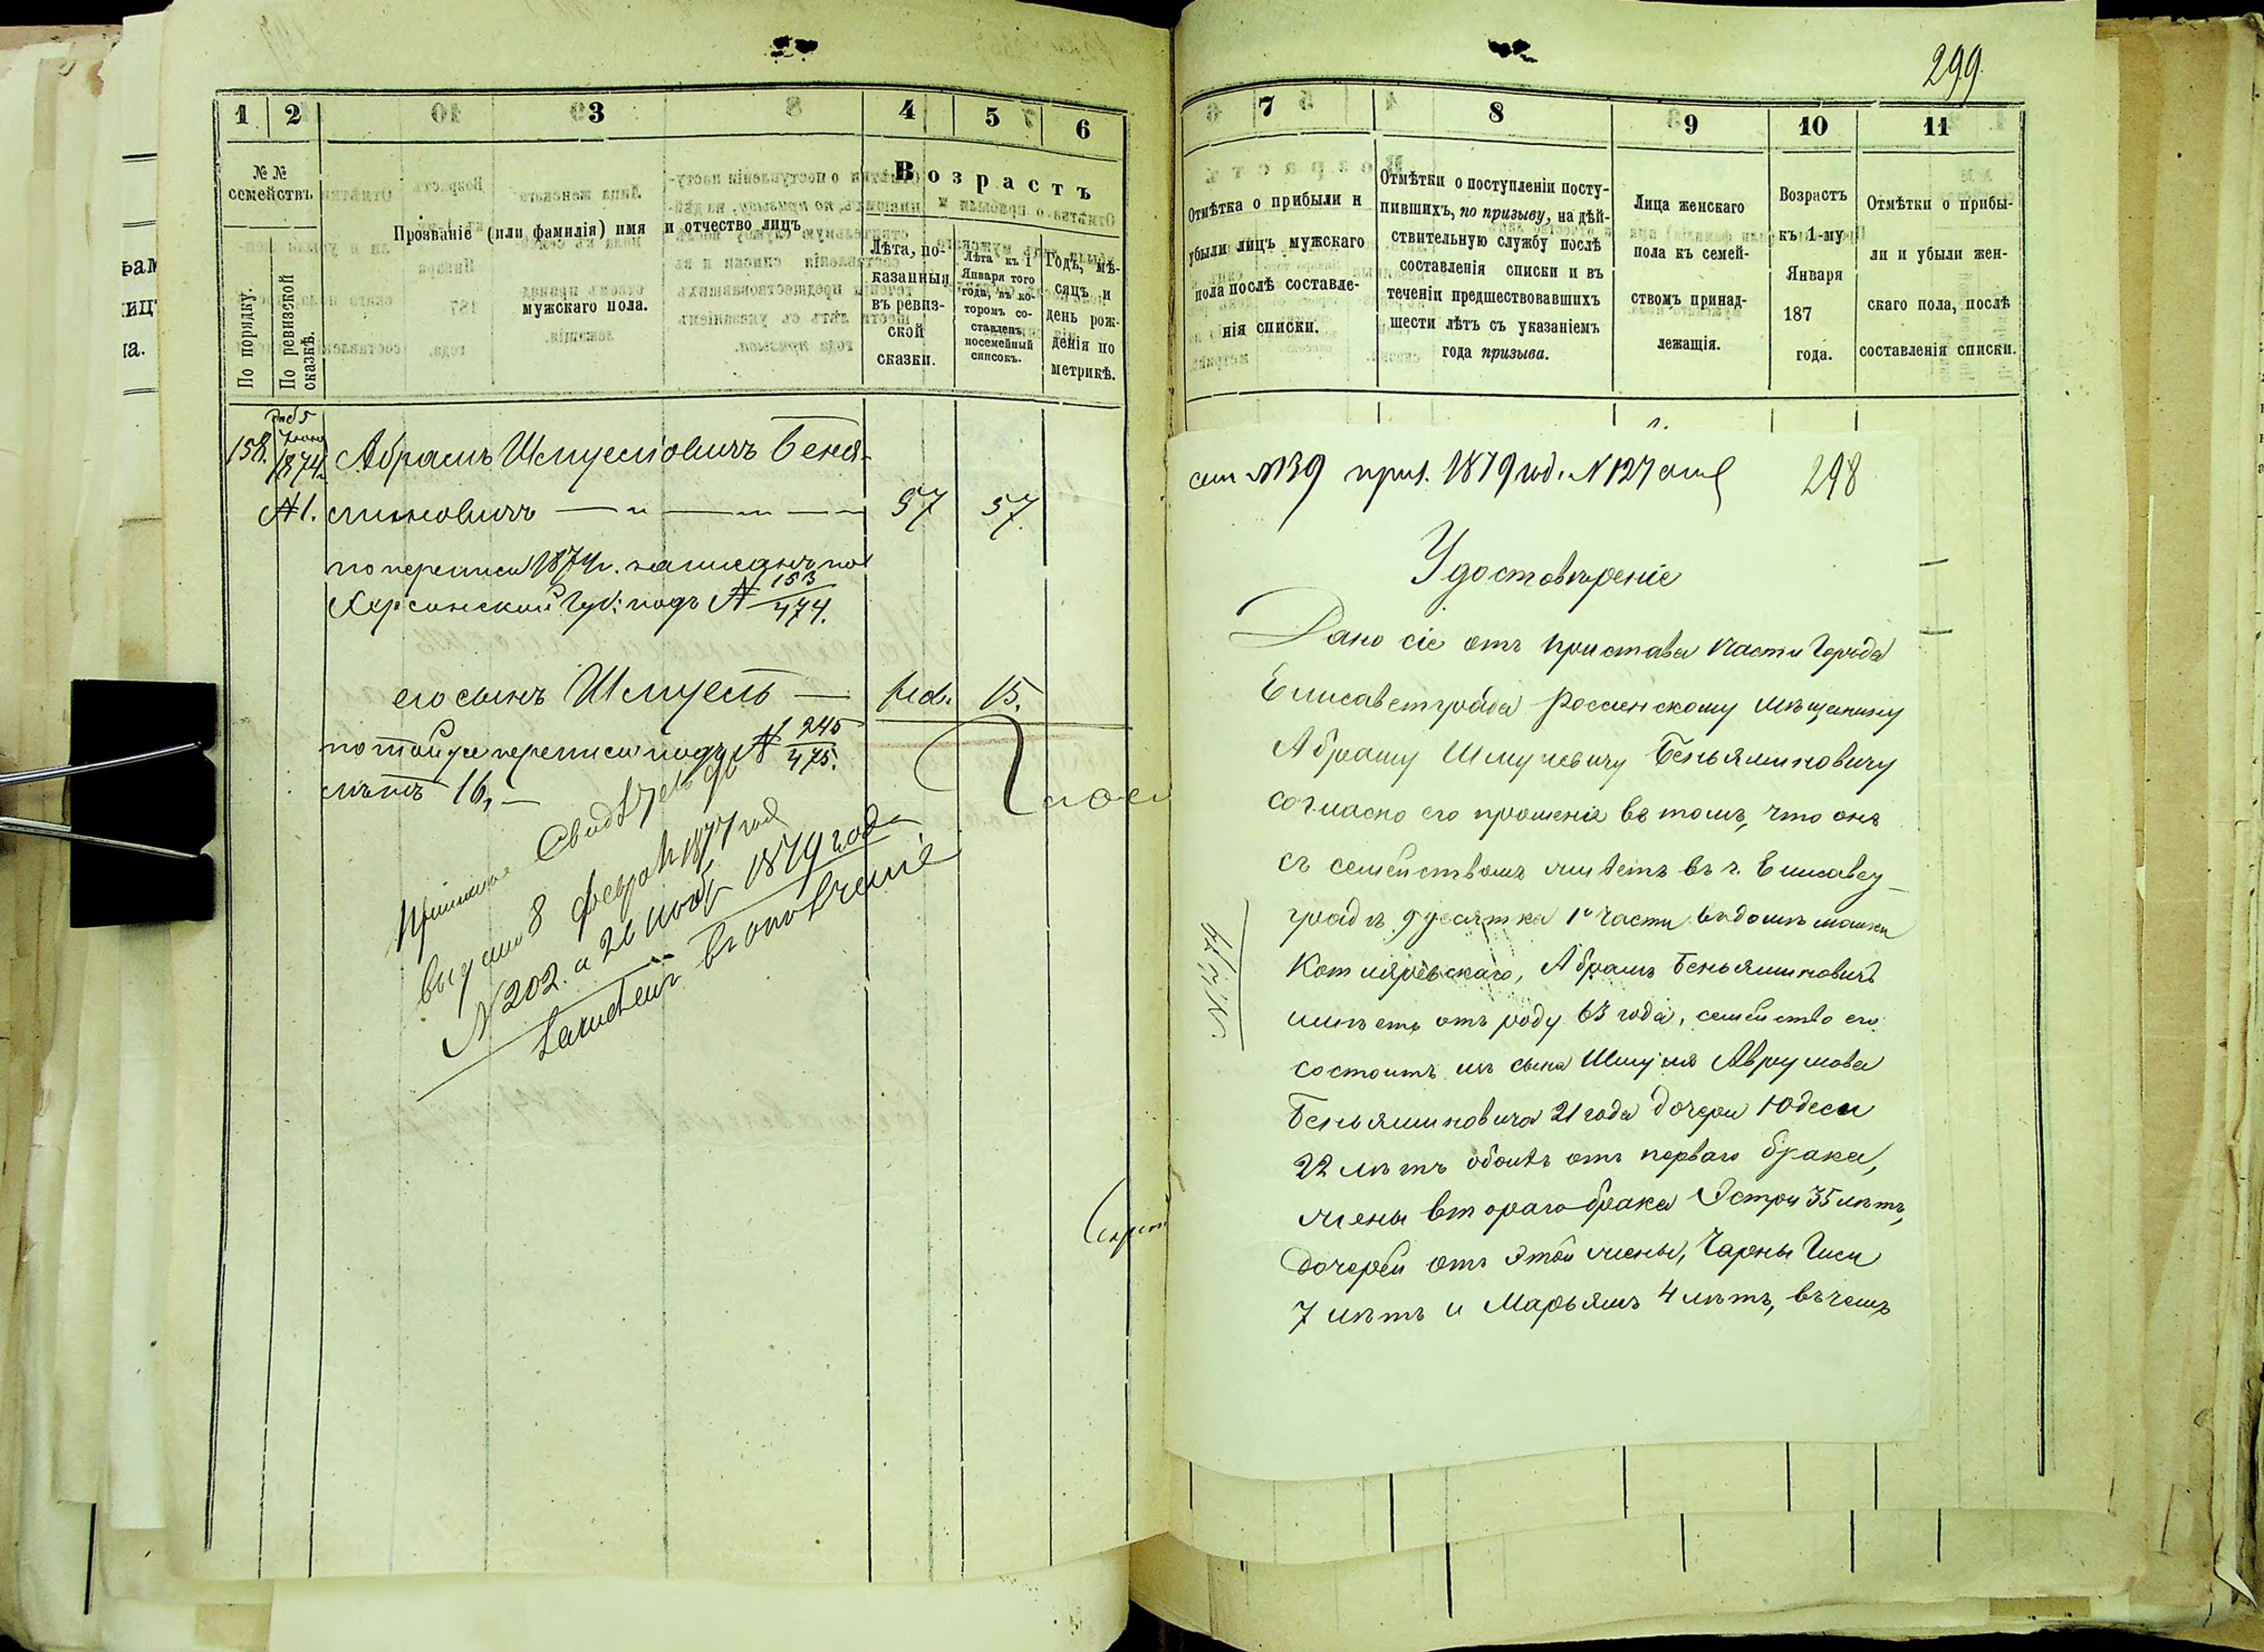 1 2 3 4 5 6
№ № семействъ.
По порядку.
По ревизской сказкѣ.
Прозваніе (или фамилія) имя и отчество лицъ
мужскаго пола.
Возрастъ
Лѣта, по-
казанныя
въ ревиз-
ской
сказки.
Лѣта къ 1
Января того
года, въ ко-
торомъ со-
ставленъ
посемейный
списокъ.
Годъ, мѣ-
сяцъ и
день рож-
денія по
метрикѣ.
158. 1874 Абрамъ Шмуелiовичъ Бенья-
№ 1. миновичъ — „ — „ — 57 57
по переписи 1874 г. записанъ по
Херсонской Губ: подъ № 153/474.
его сынъ Шмуель — 15.
по той же переписи подъ № 245/475.
лѣтъ 16, —
выдано 8 февраля 1877 года
№ 202. и 26 нояб. 1879 года
299
7 8 9 10 11
Отмѣтка о прибыли и
убыли лицъ мужскаго
пола послѣ составле-
нія списки.
Отмѣтки о поступленіи посту-
пившихъ, по призыву, на дѣй-
ствительную службу послѣ
составленія списки и въ
теченіи предшествовавшихъ
шести лѣтъ съ указаніемъ
года призыва.
Лица женскаго
пола къ семей-
ствомъ принад-
лежащія.
Возрастъ
къ 1-му
Января
187
года.
Отмѣтки о прибы-
ли и убыли жен-
скаго пола, послѣ
составленія списки.
1879 год. № 127 298
Удостовѣреніе
Дано сіе отъ пристава части Города
Елисаветграда Россіенскому мѣщанину
Абраму Шмулевичу Беньяминовичу
согласно его прошенія въ томъ, что онъ
съ семействомъ живетъ въ г. Елисавет-
градѣ 9 десятка 1й части въ домѣ
Котляревскаго, Абрамъ Беньяминовичъ
имѣетъ отъ роду 63 года, семейство его
состоитъ изъ сына Шмуля Аврумова
Беньяминовича 21 года дочери Юдеси
22 лѣтъ обоихъ отъ перваго брака,
жены втораго брака Эстри 35 лѣтъ,
дочерей отъ этой жены, Чарны Гиси
7 лѣтъ и Марьямъ 4 лѣтъ, въ чемъ